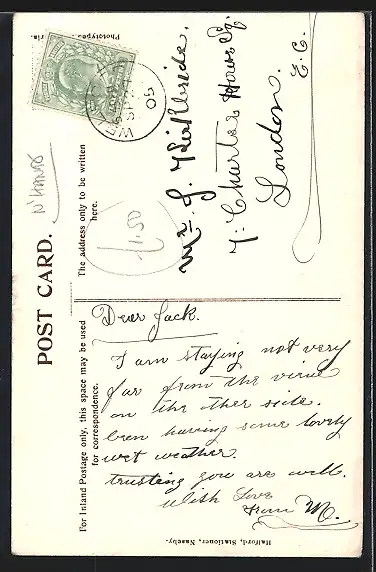 POST CARD.
For Inland Postage only, this space may be used
for correspondence.
The address only to be written
here.
Dear Jack.
I am staying not very
far from the view
on the other side.
been having some lovely
wet weather.
trusting you are well.
With Love
from M.
Mr J.
7. Charter House Sq.
London.
E.C.
05
£1.50
Halford, Stationer, Naseby.
Phototype